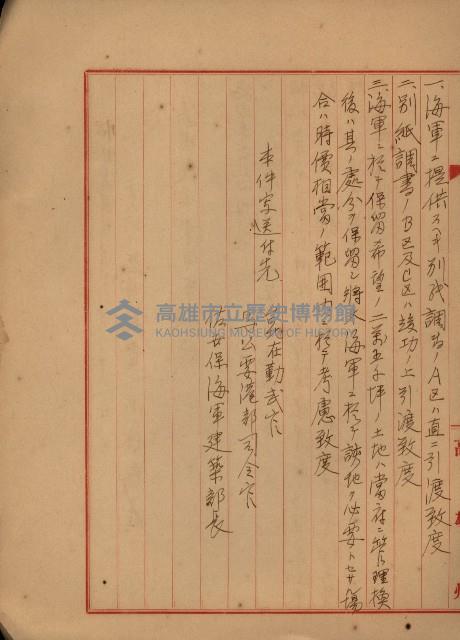 一、海軍ニ提供スベキ別紙調書ノA区ハ直ニ引渡致度
二、別紙調書ノB区及C区ハ竣功ノ上引渡致度
三、海軍ニ於テ保留希望ノ二萬五千坪ノ土地ハ當府ニ管理換
後ハ其ノ處分ヲ保留シ將来海軍ニ於テ該地ヲ必要トセル場
合ハ時價相當ノ範囲内ニ於テ考慮致度
本件写送付先
在勤武官
馬公要港部司令官
佐世保海軍建築部長
高雄州
高雄市立歷史博物館
KAOHSIUNG MUSEUM OF HISTORY